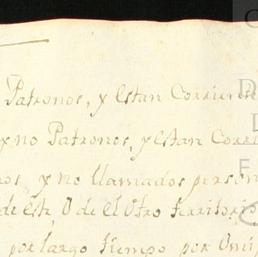 Patronos, y estan Corriente
y no Patronos, y estan Corri
os, y no llamados person
de este, O de el Otro territorio
por largo tiempo por